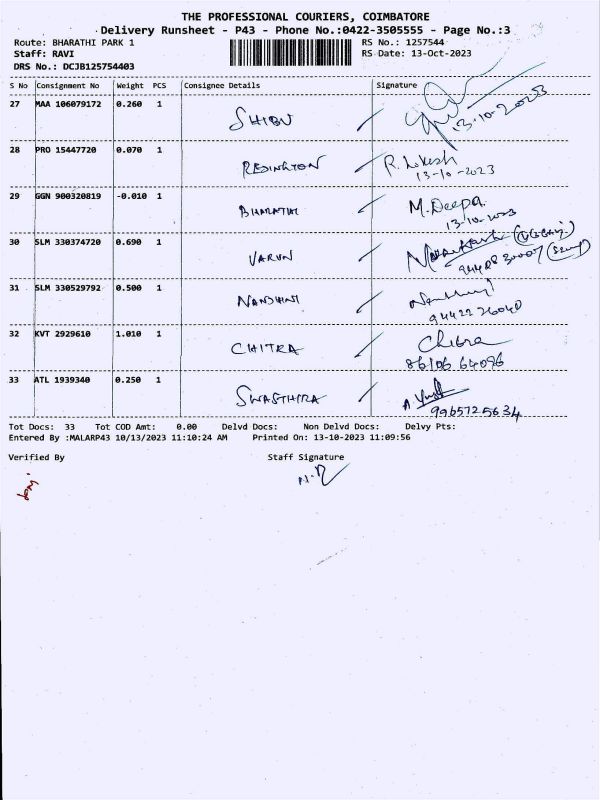 THE PROFESSIONAL COURIERS, COIMBATORE
Delivery Runsheet - P43 - Phone No.:0422-3505555 - Page No.:3
Route: BHARATHI PARK 1 RS No.: 1257544
Staff: RAVI RS Date: 13-Oct-2023
DRS No.: DCJB125754403
S No Consignment No Weight PCS Consignee Details Signature
27 MAA 106079172 0.260 1 SHIBU 13-10-2023
28 PRO 15447720 0.070 1 REDINGTON R. Lokesh
13-10-2023
29 GGN 900320819 -0.010 1 BHARATHI M.Deepa.
13-10-2023
30 SLM 330374720 0.690 1 VARUN
31 SLM 330529792 0.500 1 NANDHINI
94422 26040
32 KVT 2929610 1.010 1 CHITRA Chitra
86106 64096
33 ATL 1939340 0.250 1 SWASTHIRA
9965725634
Tot Docs: 33 Tot COD Amt: 0.00 Delvd Docs: Non Delvd Docs: Delvy Pts:
Entered By :MALARP43 10/13/2023 11:10:24 AM Printed On: 13-10-2023 11:09:56
Verified By Staff Signature